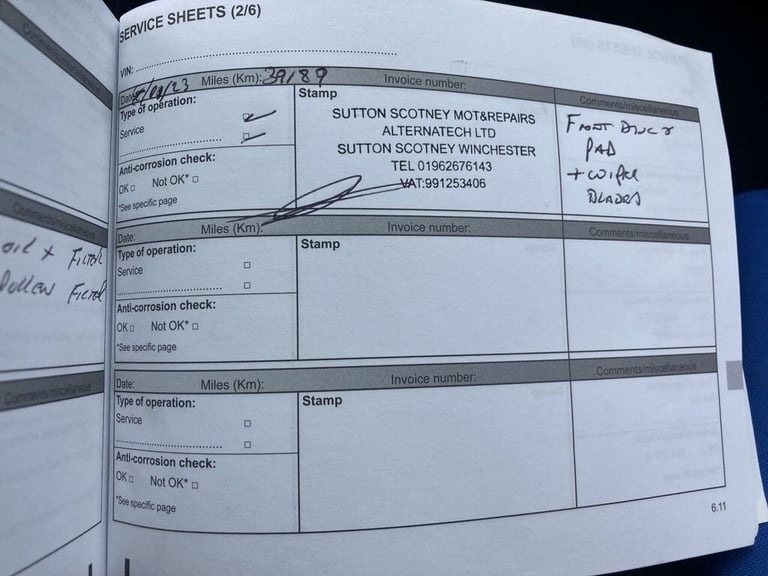 SERVICE SHEETS (2/6)
VIN:
Date: Miles (Km): 39189 Invoice number:
Comments/miscellaneous
Type of operation:
Service
Anti-corrosion check:
OK Not OK*
*See specific page
Stamp
SUTTON SCOTNEY MOT&REPAIRS
ALTERNATECH LTD
SUTTON SCOTNEY WINCHESTER
TEL 01962676143
VAT:991253406
FRONT DISCS
PAD
+ WIPER
BLADES
Date: Miles (Km): Invoice number:
Comments/miscellaneous
Type of operation:
Service
Anti-corrosion check:
OK Not OK*
*See specific page
Stamp
Date: Miles (Km): Invoice number:
Comments/miscellaneous
Type of operation:
Service
Anti-corrosion check:
OK Not OK*
*See specific page
Stamp
6.11
Comments/miscellaneous
Comments/miscellaneous
OIL + FILTER
POLLEN FILTER
Comments/miscellaneous